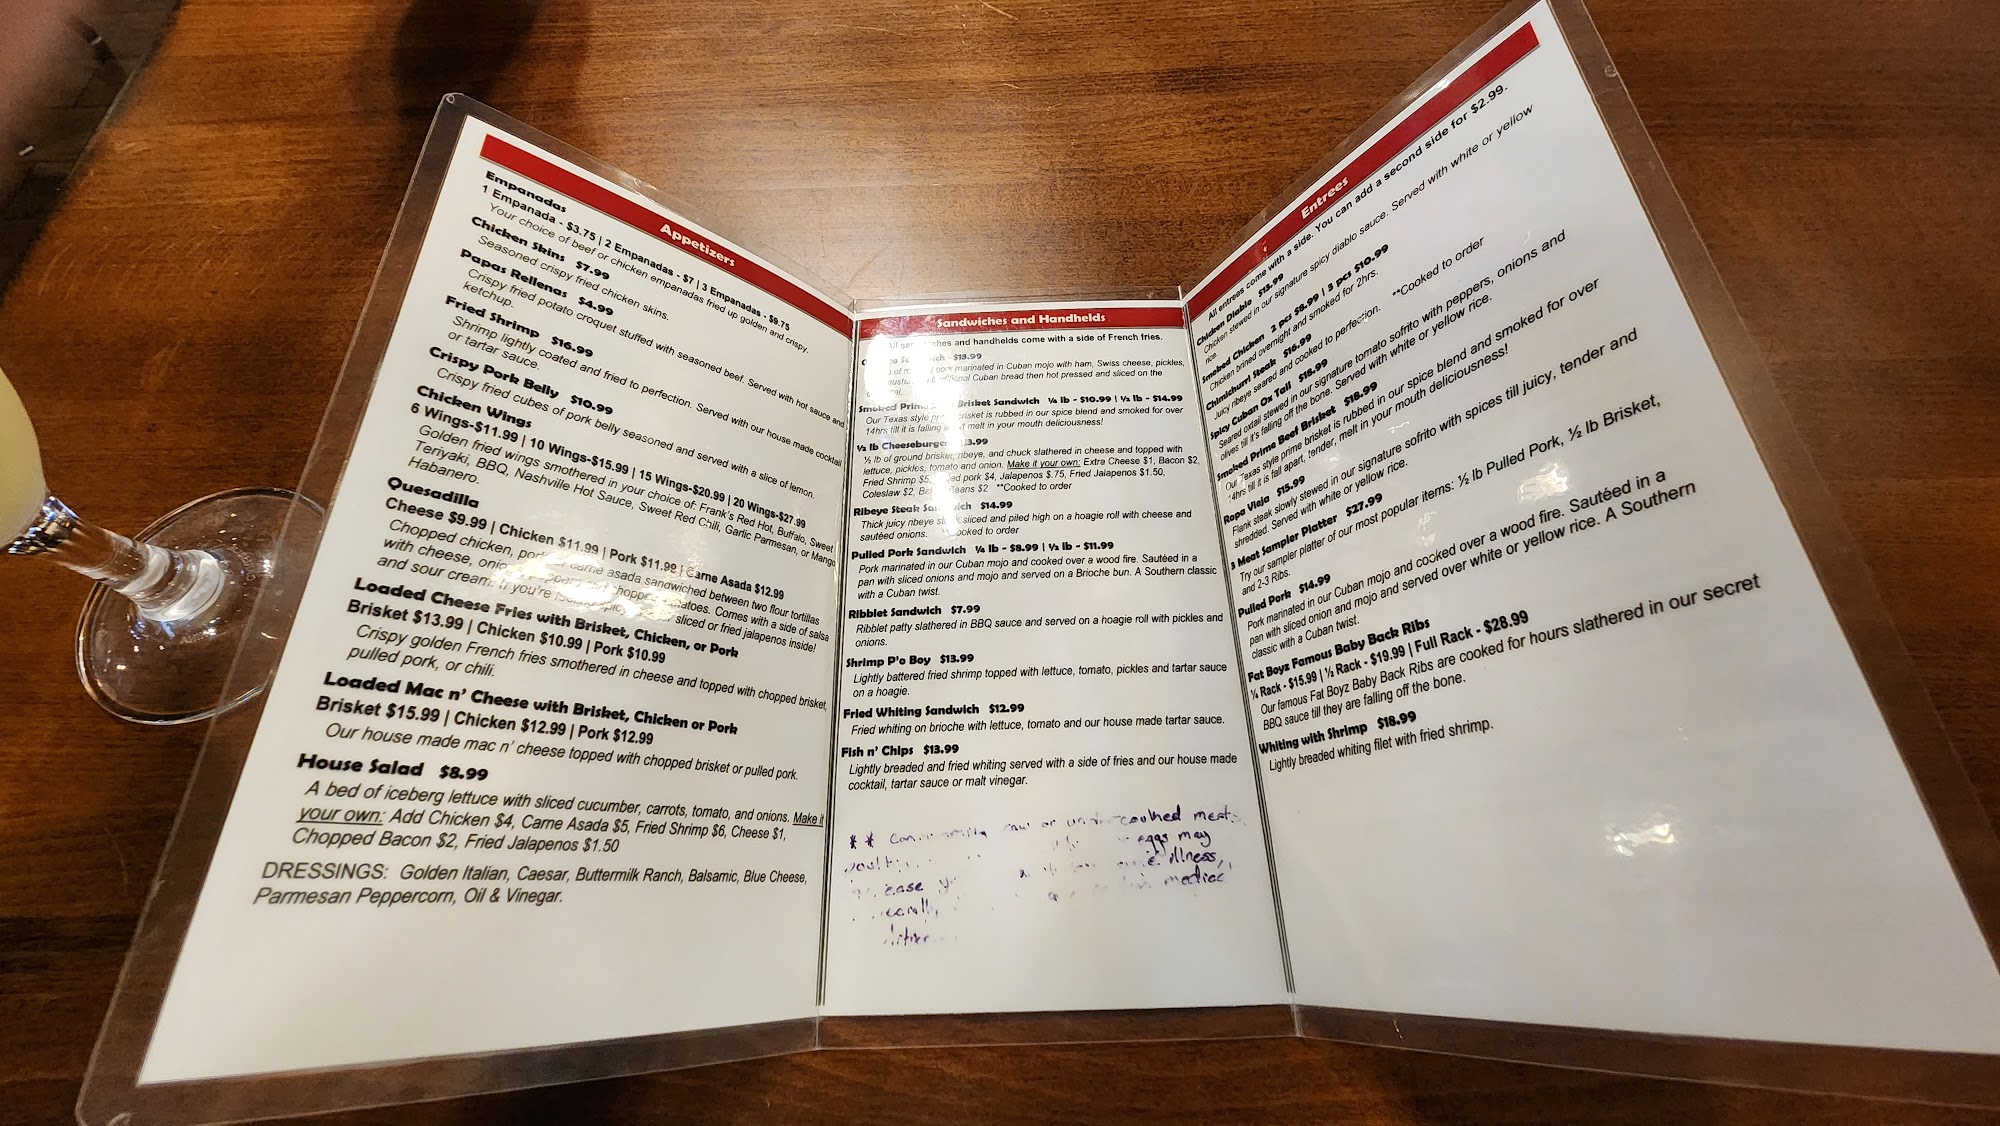 Appetizers
Empanadas
1 Empanada - $3.75 | 2 Empanadas - $7 | 3 Empanadas - $9.75
Your choice of beef or chicken empanadas fried up golden and crispy.
Chicken Skins $7.99
Seasoned crispy fried chicken skins.
Papas Rellenas $4.99
Crispy fried potato croquet stuffed with seasoned beef. Served with hot sauce and
ketchup.
Fried Shrimp $16.99
Shrimp lightly coated and fried to perfection. Served with our house made cocktail
or tartar sauce.
Crispy Pork Belly $10.99
Crispy fried cubes of pork belly seasoned and served with a slice of lemon.
Chicken Wings
6 Wings-$11.99 | 10 Wings-$15.99 | 15 Wings-$20.99 | 20 Wings-$27.99
Golden fried wings smothered in your choice of: Frank's Red Hot, Buffalo, Sweet
Teriyaki, BBQ, Nashville Hot Sauce, Sweet Red Chili, Garlic Parmesan, or Mango
Habanero.
Quesadilla
Cheese $9.99 | Chicken $11.99 | Pork $11.99 | Carne Asada $12.99
Chopped chicken, pork or carne asada sandwiched between two flour tortillas
with cheese, onions, peppers and chopped tomatoes. Comes with a side of salsa
and sour cream. If you're feeling spicy sliced or fried jalapenos inside!
Loaded Cheese Fries with Brisket, Chicken, or Pork
Brisket $13.99 | Chicken $10.99 | Pork $10.99
Crispy golden French fries smothered in cheese and topped with chopped brisket,
pulled pork, or chili.
Loaded Mac n' Cheese with Brisket, Chicken or Pork
Brisket $15.99 | Chicken $12.99 | Pork $12.99
Our house made mac n' cheese topped with chopped brisket or pulled pork.
House Salad $8.99
A bed of iceberg lettuce with sliced cucumber, carrots, tomato, and onions. Make it
your own: Add Chicken $4, Carne Asada $5, Fried Shrimp $6, Cheese $1,
Chopped Bacon $2, Fried Jalapenos $1.50
DRESSINGS: Golden Italian, Caesar, Buttermilk Ranch, Balsamic, Blue Cheese,
Parmesan Peppercorn, Oil & Vinegar.
Sandwiches and Handhelds
All sandwiches and handhelds come with a side of French fries.
Sandwich - $13.99
pork marinated in Cuban mojo with ham, Swiss cheese, pickles,
Cuban bread then hot pressed and sliced on the
Smoked Prime Brisket Sandwich ¼ lb - $10.99 | ½ lb - $14.99
Our Texas style prime brisket is rubbed in our spice blend and smoked for over
14hrs till it is falling melt in your mouth deliciousness!
½ lb Cheeseburger $13.99
½ lb of ground brisket, ribeye, and chuck slathered in cheese and topped with
lettuce, pickles, tomato and onion. Make it your own: Extra Cheese $1, Bacon $2,
Fried Shrimp $5, pork $4, Jalapenos $.75, Fried Jalapenos $1.50,
Coleslaw $2, Beans $2 **Cooked to order
Ribeye Steak Sandwich $14.99
Thick juicy ribeye steak sliced and piled high on a hoagie roll with cheese and
sautéed onions. **Cooked to order
Pulled Pork Sandwich ¼ lb - $8.99 | ½ lb - $11.99
Pork marinated in our Cuban mojo and cooked over a wood fire. Sautéed in a
pan with sliced onions and mojo and served on a Brioche bun. A Southern classic
with a Cuban twist.
Ribblet Sandwich $7.99
Ribblet patty slathered in BBQ sauce and served on a hoagie roll with pickles and
onions.
Shrimp P'o Boy $13.99
Lightly battered fried shrimp topped with lettuce, tomato, pickles and tartar sauce
on a hoagie.
Fried Whiting Sandwich $12.99
Fried whiting on brioche with lettuce, tomato and our house made tartar sauce.
Fish n' Chips $13.99
Lightly breaded and fried whiting served with a side of fries and our house made
cocktail, tartar sauce or malt vinegar.
** Consuming raw or undercooked meat,
eggs may
illness,
Entrees
All entrees come with a side. You can add a second side for $2.99.
Chicken Diablo $13.99
Chicken stewed in our signature spicy diablo sauce. Served with white or yellow
rice.
Smoked Chicken 2 pcs $8.99 | 3 pcs $10.99
Chicken brined overnight and smoked for 2hrs.
Chimichurri Steak $16.99
Juicy ribeye seared and cooked to perfection. **Cooked to order
Spicy Cuban Ox Tail $18.99
Seared oxtail stewed in our signature tomato sofrito with peppers, onions and
olives till it's falling off the bone. Served with white or yellow rice.
Smoked Prime Beef Brisket $18.99
Our Texas style prime brisket is rubbed in our spice blend and smoked for over
14hrs till it is fall apart, tender, melt in your mouth deliciousness!
Ropa Vieja $15.99
Flank steak slowly stewed in our signature sofrito with spices till juicy, tender and
shredded. Served with white or yellow rice.
3 Meat Sampler Platter $27.99
Try our sampler platter of our most popular items: ½ lb Pulled Pork, ½ lb Brisket,
and 2-3 Ribs.
Pulled Pork $14.99
Pork marinated in our Cuban mojo and cooked over a wood fire. Sautéed in a
pan with sliced onion and mojo and served over white or yellow rice. A Southern
classic with a Cuban twist.
Fat Boyz Famous Baby Back Ribs
¼ Rack - $15.99 | ½ Rack - $19.99 | Full Rack - $28.99
Our famous Fat Boyz Baby Back Ribs are cooked for hours slathered in our secret
BBQ sauce till they are falling off the bone.
Whiting with Shrimp $18.99
Lightly breaded whiting filet with fried shrimp.